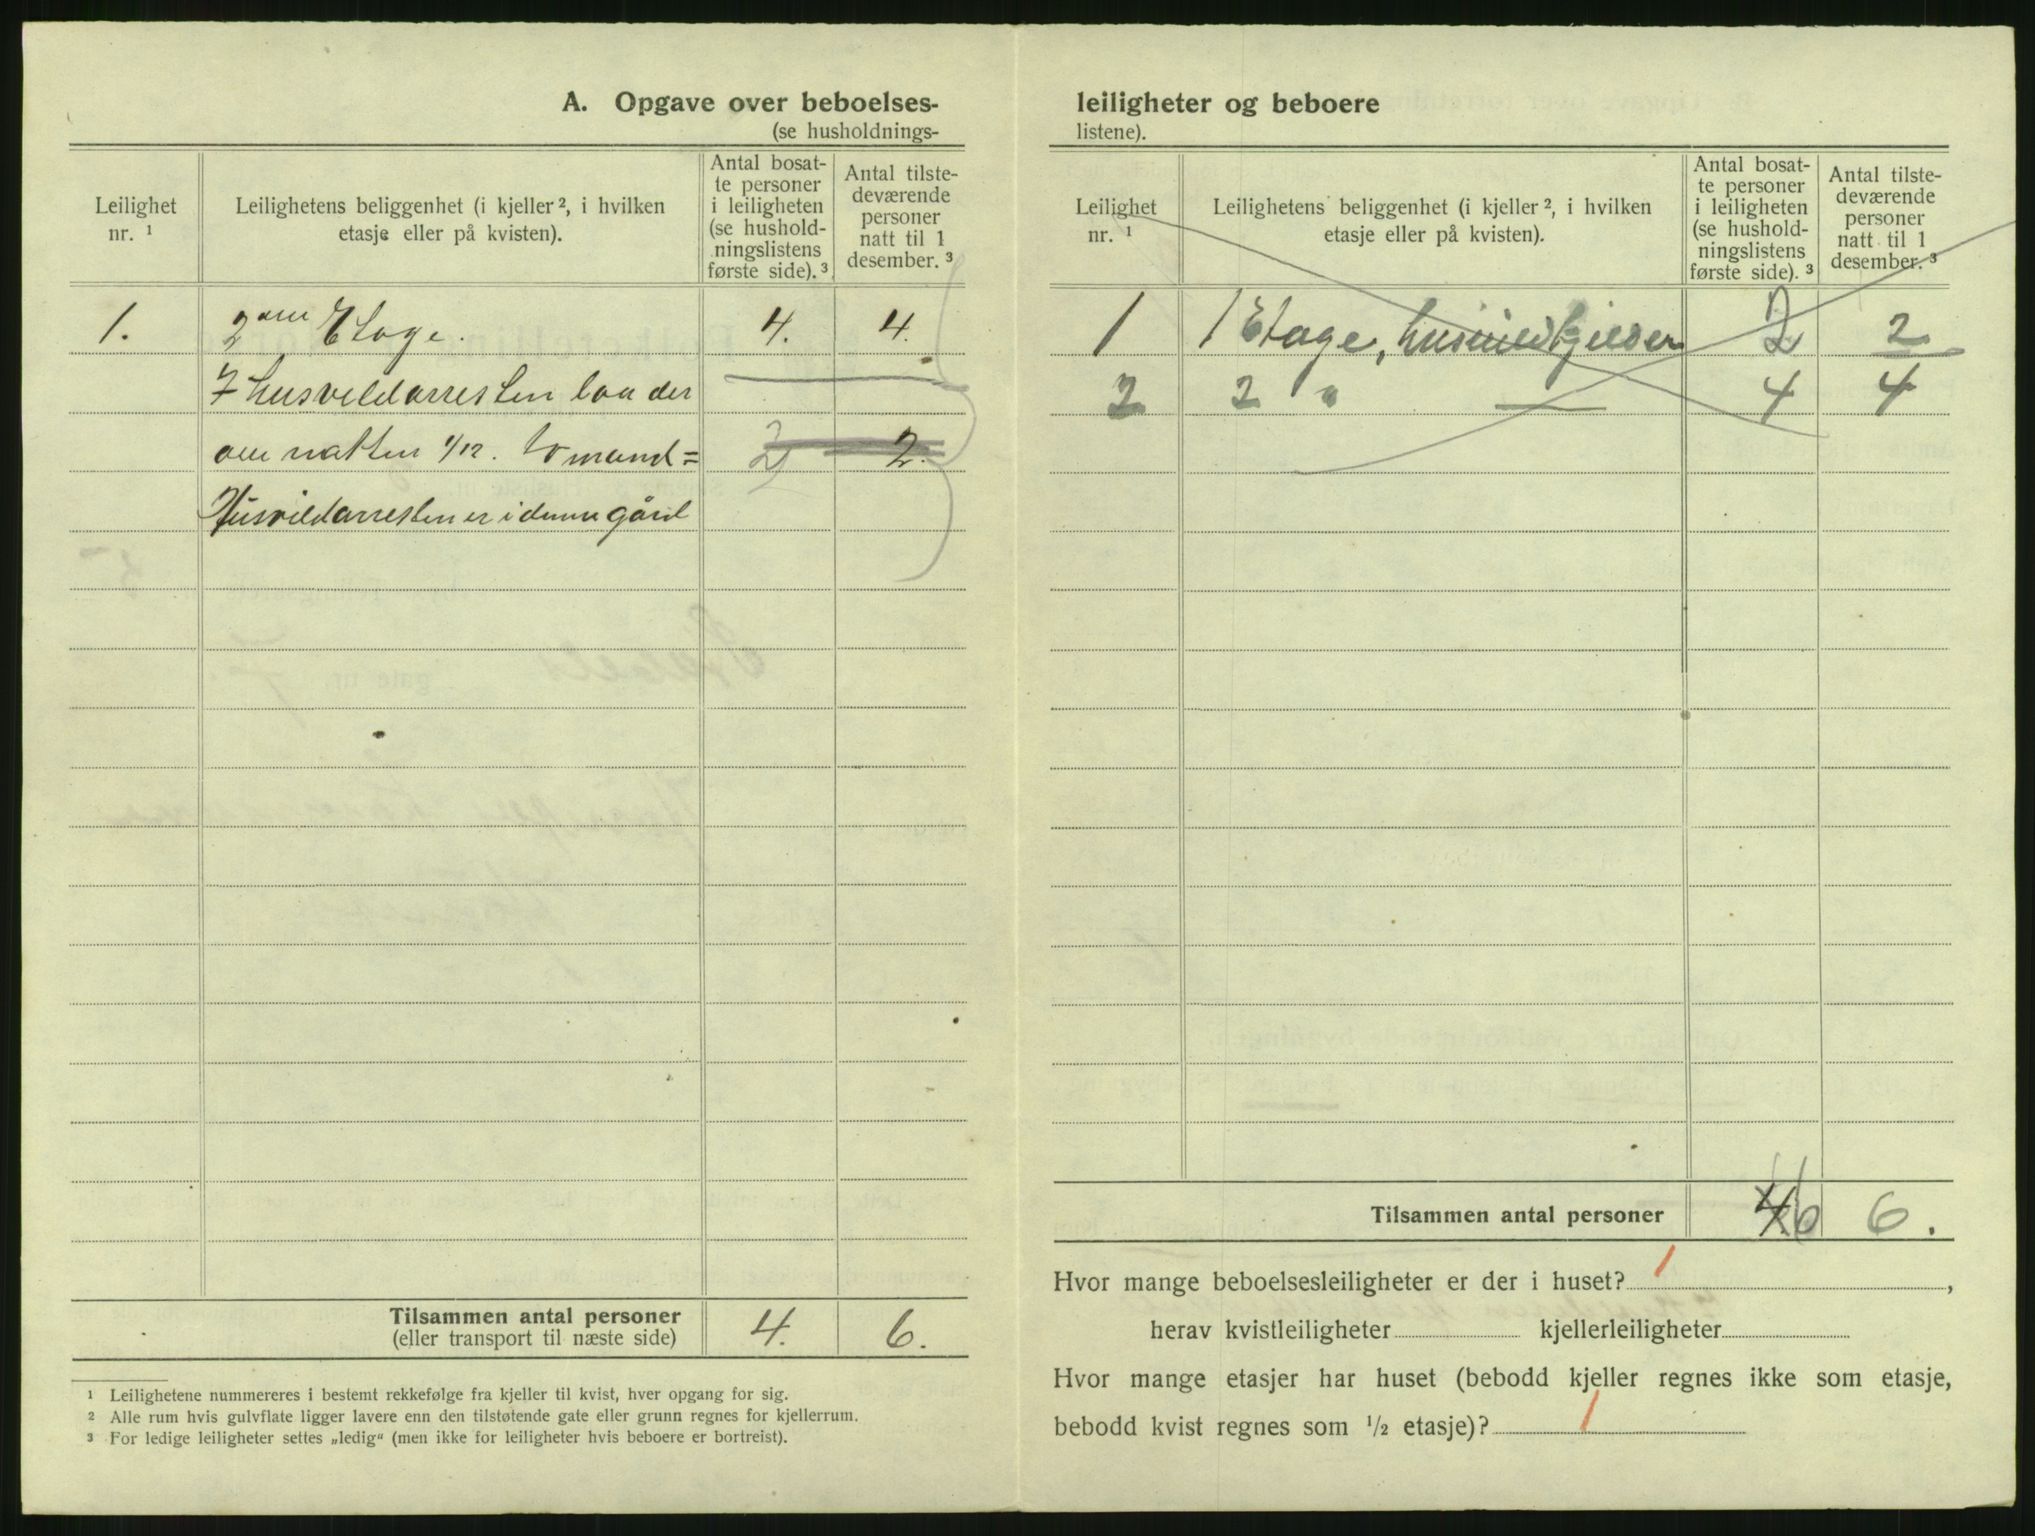 A. Opgave over beboelses-
(se husholdnings-
Leilighet
nr. ¹
Leilighetens beliggenhet (i kjeller ², i hvilken
etasje eller på kvisten).
Antal bosat-
te personer
i leiligheten
(se hushold-
ningslistens
første side). ³
Antal tilste-
deværende
personer
natt til 1
desember. ³
1. 2 Etage. 4. 4.
I husvildarresten laa der
om natten 1/12. to mand = 2 2.
Husvildarresten er i denne gård
Tilsammen antal personer 4. 6.
(eller transport til næste side)
¹ Leilighetene nummereres i bestemt rekkefølge fra kjeller til kvist, hver opgang for sig.
² Alle rum hvis gulvflate ligger lavere enn den tilstøtende gate eller grunn regnes for kjellerrum.
³ For ledige leiligheter settes „ledig“ (men ikke for leiligheter hvis beboere er bortreist).
leiligheter og beboere
listene).
Leilighet
nr. ¹
Leilighetens beliggenhet (i kjeller ², i hvilken
etasje eller på kvisten).
Antal bosat-
te personer
i leiligheten
(se hushold-
ningslistens
første side). ³
Antal tilste-
deværende
personer
natt til 1
desember. ³
1 1 Etage, 2 2
2 2 " — 4 4
Tilsammen antal personer 4 6 6.
Hvor mange beboelsesleiligheter er der i huset? 1,
herav kvistleiligheter kjellerleiligheter
Hvor mange etasjer har huset (bebodd kjeller regnes ikke som etasje,
bebodd kvist regnes som ½ etasje)? 1